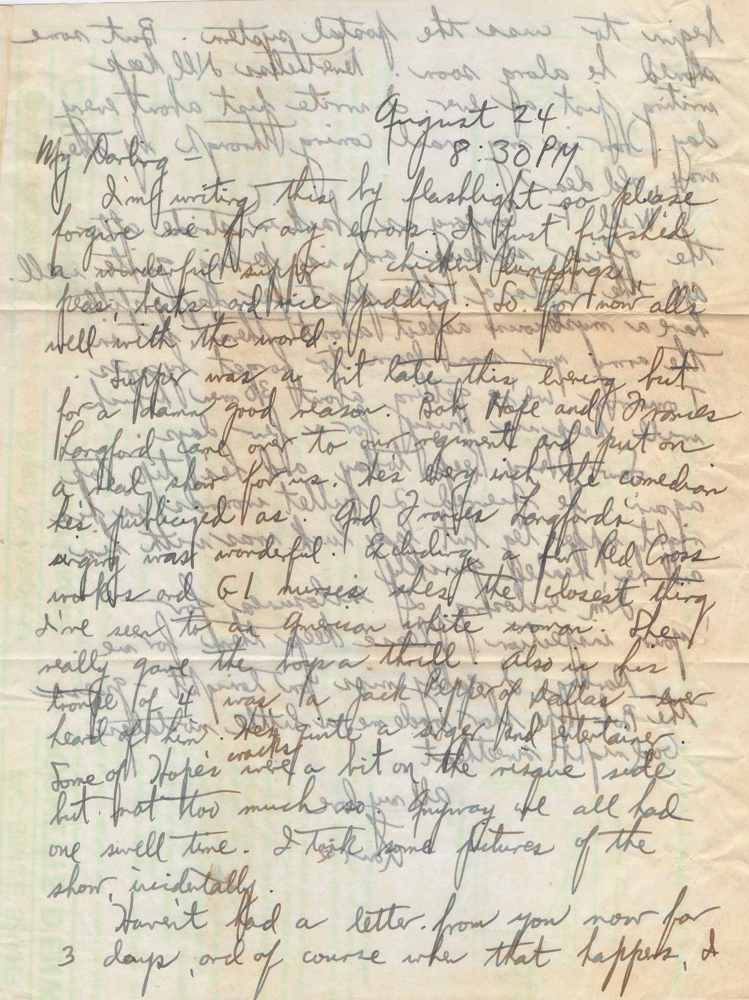 August 24
8:30 PM
My Darling –
I'm writing this by flashlight so please
forgive me for any errors. I just finished
a wonderful supper of chicken, dumplings,
peas, beats, and rice pudding. So for now all's
well with the world.
Supper was a bit late this evening but
for a damn good reason. Bob Hope and Frances
Langford came over to our regiment and put on
a real show for us. He's every inch the comedian
he's publicized as. And Frances Langford's
singing was wonderful. Excluding a few Red Cross
workers and GI nurses she's the closest thing
I've seen to an American white woman. She
really gave the boys a thrill. Also in his
troupe of 4 was a Jack Pepper of Dallas – ever
heard of him. He's quite a singer and entertainer.
Some of Hope's cracks were a bit on the risque side
but not too much so. Anyway we all had
one swell time. I took some pictures of the
show, incidentally.
Haven't had a letter from you now for
3 days, and of course when that happens, I